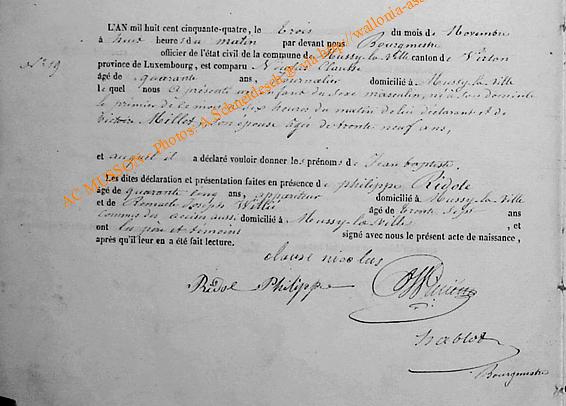 L'AN mil huit cent cinquante-quatre, le trois du mois de Novembre
à huit heures du matin par devant nous Bourgmestre
officier de l'état civil de la commune de Mussy-la-Ville canton de Virton
N° 19
province de Luxembourg, est comparu Nicolas Clausse
âgé de quarante ans, journalier domicilié à Mussy-la-Ville
lequel nous a présenté un enfant du sexe masculin, né à son domicile
le premier de ce mois à heures du matin de lui déclarant et de
Millot, son épouse âgée de trente neuf ans,
et auquel il a déclaré vouloir donner les prénoms de Jean baptiste.
Les dites déclaration et présentation faites en présence de philippe Ridole
âgé de quarante cinq ans, appariteur domicilié à Mussy-la-Ville
et de Romuald Joseph âgé de trente sept ans
Commis des accises aussi domicilié à Mussy-la-Ville, et
ont les père et témoins signé avec nous le présent acte de naissance,
après qu'il leur en a été fait lecture.
clause nicolas
Ridole Philippe
Bourgmestre
AC MUSSON - Photos: A.Schneidesch, via http://wallonia-ass